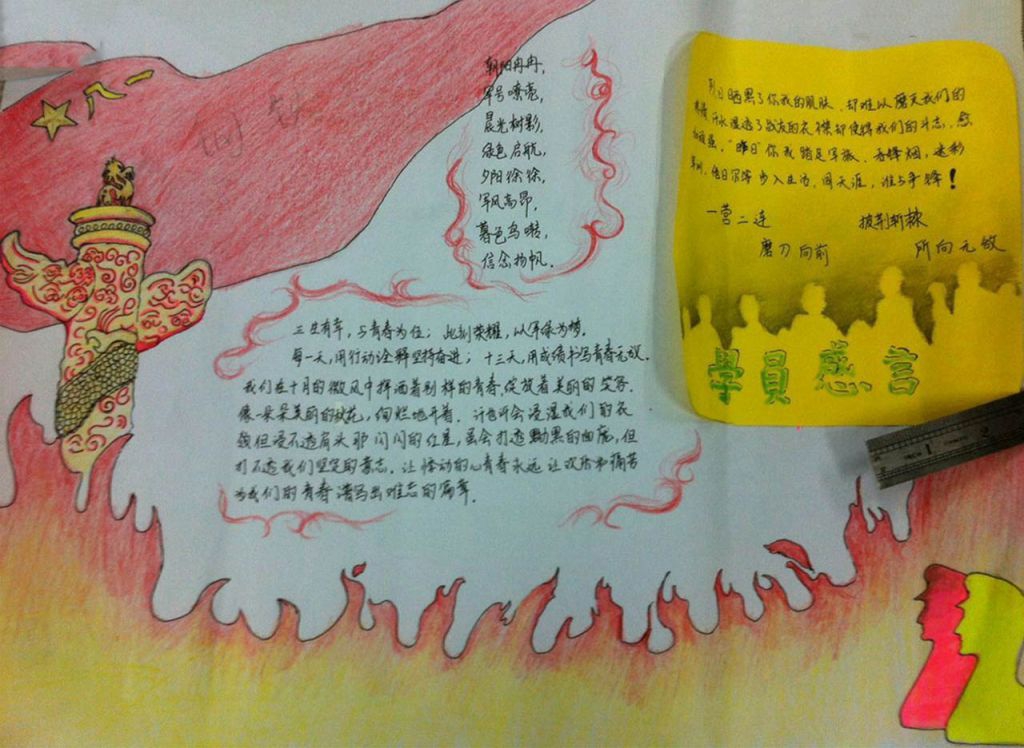 八一
朝阳冉冉，
军号嘹亮，
晨光树影，
绿色启航，
夕阳徐徐，
军风高昂，
暮色鸟啼，
信念扬帆．
三生有幸，与青春为伍；此刻荣耀，以军绿为榜．
每一天，用行动诠释坚持奋进；十三天，用成绩书写青春无敌．
我们在十月的微风中挥洒着别样的青春，绽放着美丽的笑容．
像一朵朵美丽的秋花，绚烂地开着．汗也许会浸湿我们的衣
领但浸不透肩头那闪闪的红星，虽会打透黝黑的面庞，但
打不透我们坚定的意志．让悸动的心青春永远让欢乐和痛苦
为我们的青春谱写出难忘的篇章．
烈日晒黑了你我的肌肤．却难以磨灭我们的
汗水湿透了战友的衣襟却使得我们的斗志．愈
"昨日"你我踏足军旅．吞烽烟，迷彩
军训，他日 步入生活，闯天涯，谁与争锋！
一营二连 披荆斩棘
磨刀向前 所向无敌
學員感言
1 2